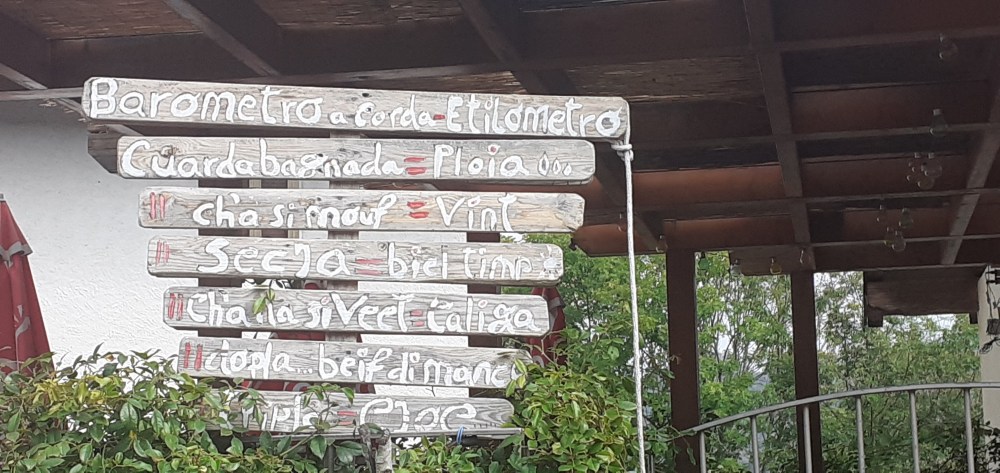 Barometro a Corda - Etilometro
Cuardabagnada = Ploia ...
" ch'a si mouf = Vint
" Secja = biel timp
" Ch'a la si Vect = Caliga
" beif di manco